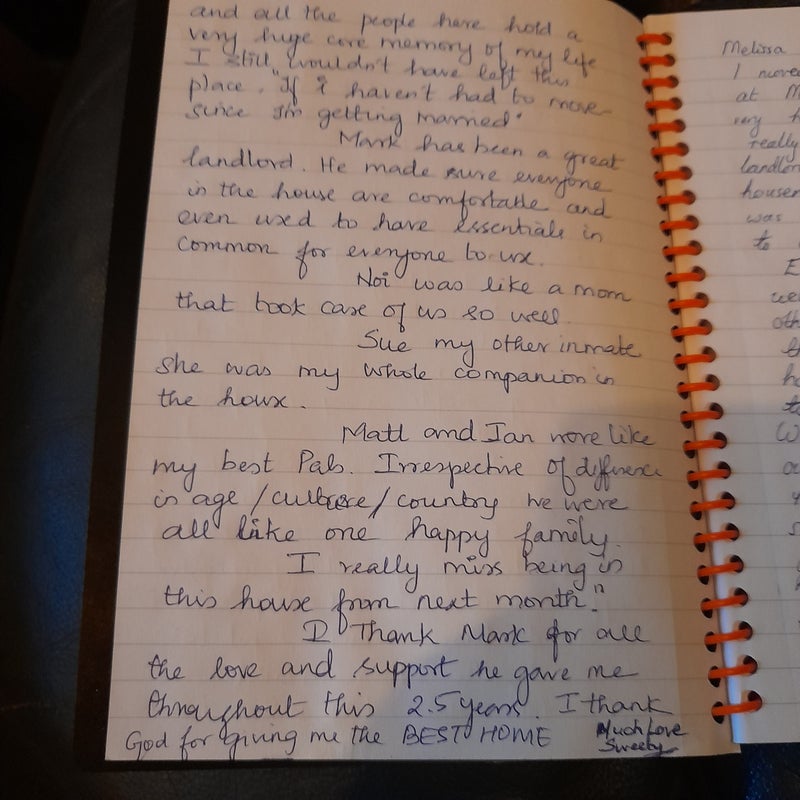 and all the people here hold a
very huge core memory of my life
I still wouldn't have left this
place. "If I haven't had to move
since I'm getting married"
Mark has been a great
landlord. He made sure everyone
in the house are comfortable and
even used to have essentials in
common for everyone to use.
Noi was like a mom
that took care of us so well.
Sue my other inmate
she was my whole companion in
the house.
Matt and Ian were like
my best Pals. Irrespective of difference
in age / culture / country we were
all like one happy family.
I really miss being in
this house from next month."
I Thank Mark for all
the love and support he gave me
throughout this 2.5 years. I thank
God for giving me the BEST HOME
Much Love
Sweety
Melissa
I moved
at M
very h
really
landlor
housem
was
to
E
wer
oth
ho
W